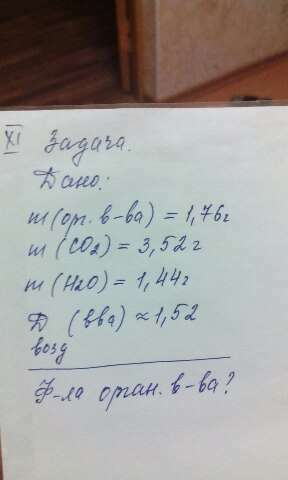 XI Задача.
Дано:
m (орг. в-ва) = 1,76г
m (CO2) = 3,52г
m (H2O) = 1,44г
Д (вва) ≈ 1,52
возд
Ф-ла орган. в-ва?